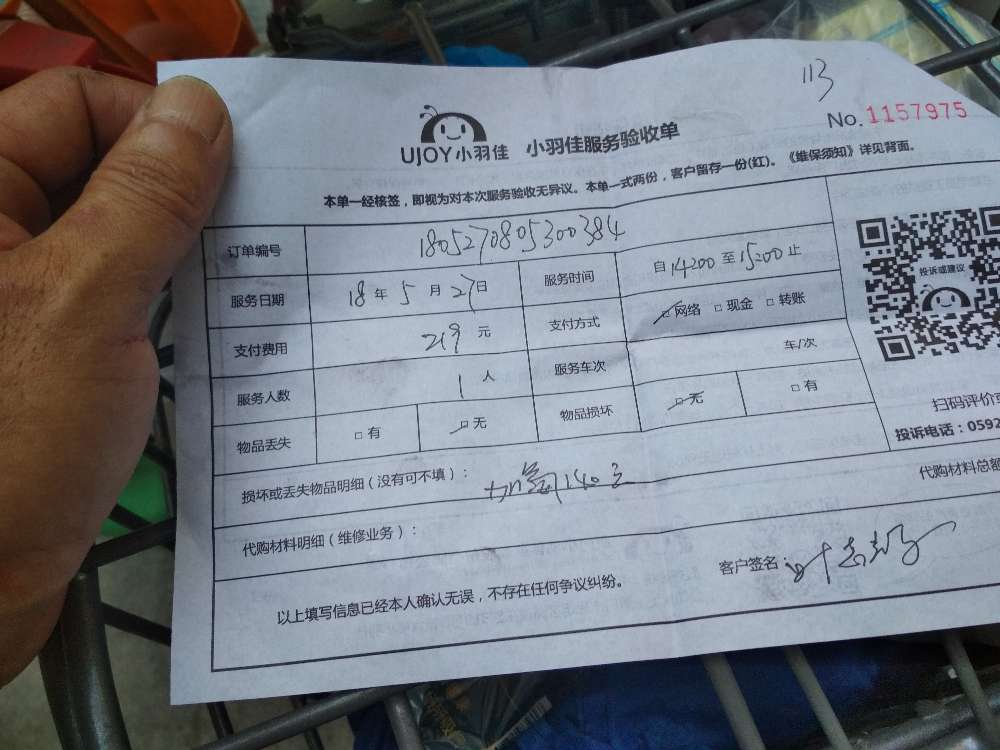 113
No.1157975
UJOY小羽佳 小羽佳服务验收单
本单一经核签，即视为对本次服务验收无异议。本单一式两份，客户留存一份(红)。《维保须知》详见背面。
订单编号 180527080530384
服务日期 18年5月27日 服务时间 自14:00至15:00止
支付费用 219元 支付方式 □网络 □现金 □转账
服务人数 1人 服务车次 车/次
物品丢失 □有 □无 物品损坏 □无 □有
投诉或建议
扫码评价或
投诉电话：0592
损坏或丢失物品明细（没有可不填）： 加氟140元
代购材料明细（维修业务）： 代购材料总额
以上填写信息已经本人确认无误，不存在任何争议纠纷。 客户签名：